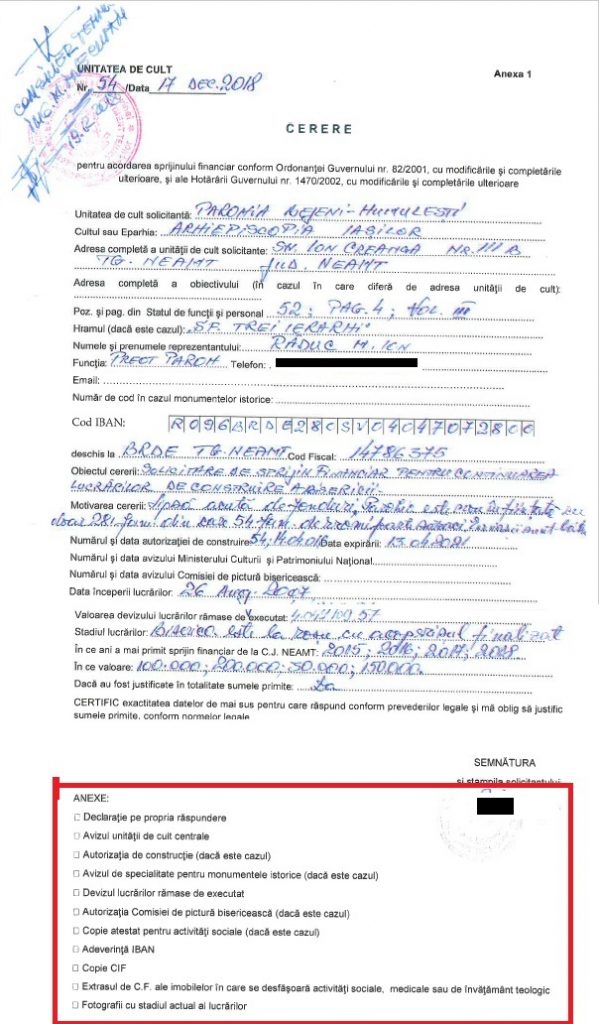 CONSILIER TEHNIC
ING. M.
19.12.2018
UNITATEA DE CULT
Nr. 54 /Data 17 DEC. 2018
Anexa 1
CERERE
pentru acordarea sprijinului financiar conform Ordonanței Guvernului nr. 82/2001, cu modificările și completările
ulterioare, și ale Hotărârii Guvernului nr. 1470/2002, cu modificările și completările ulterioare
Unitatea de cult solicitantă: PAROHIA NEJENI-HUMULEȘTI
Cultul sau Eparhia: ARHIEPISCOPIA IAȘILOR
Adresa completă a unității de cult solicitante: SN. ION CREANGA NR. 111 B
TG. NEAMT JUD. NEAMT
Adresa completă a obiectivului (în cazul în care diferă de adresa unității de cult):
Poz. și pag. din Statul de funcții și personal 52; PAG. 4; VOL. III
Hramul (dacă este cazul): „SF. TREI IERARHI"
Numele și prenumele reprezentantului: RĂDUC M. ION
Funcția: PREOT PAROH Telefon:
Email:
Număr de cod în cazul monumentelor istorice:
Cod IBAN: RO96BRDE280SV04047072800
deschis la BRDE TG. NEAMT Cod Fiscal: 14786375
Obiectul cererii: SOLICITARE DE SPRIJIN FINANCIAR PENTRU CONTINUAREA
LUCRĂRILOR DE CONSTRUIRE A BISERICII.
Motivarea cererii: Lipsă acută de fonduri, Parohia este
doar 281 fam. din care 54 fam. de rromi
Numărul și data autorizației de construire: 54; 14.04.2016 Data expirării: 13.04.2021
Numărul și data avizului Ministerului Culturii și Patrimoniului Național
Numărul și data avizului Comisiei de pictură bisericească:
Data începerii lucrărilor: 26 Aug. 2007
Valoarea devizului lucrărilor rămase de executat:
Stadiul lucrărilor: Biserica este la roșu cu acoperișul finalizat
În ce ani a mai primit sprijin financiar de la C.J. NEAMT: 2015; 2016; 2017; 2018
În ce valoare: 100.000; 200.000; 50.000; 150.000.
Dacă au fost justificate în totalitate sumele primite: Da
CERTIFIC exactitatea datelor de mai sus pentru care răspund conform prevederilor legale și mă oblig să justific
sumele primite, conform normelor legale
SEMNĂTURA
și ștampila solicitantului
ANEXE:
□ Declarație pe propria răspundere
□ Avizul unității de cult centrale
□ Autorizația de construcție (dacă este cazul)
□ Avizul de specialitate pentru monumentele istorice (dacă este cazul)
□ Devizul lucrărilor rămase de executat
□ Autorizația Comisiei de pictură bisericească (dacă este cazul)
□ Copie atestat pentru activități sociale (dacă este cazul)
□ Adeverință IBAN
□ Copie CIF
□ Extrasul de C.F. ale imobilelor în care se desfășoară activități sociale, medicale sau de învățământ teologic
□ Fotografii cu stadiul actual al lucrărilor